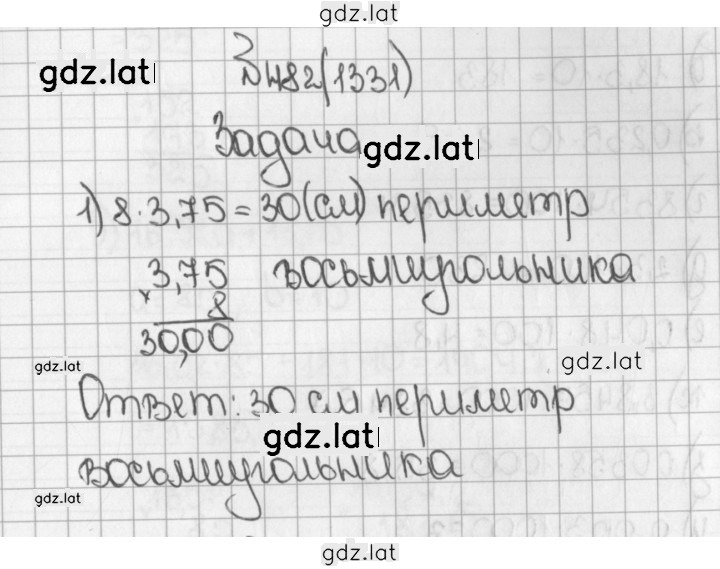 gdz.lat
gdz.lat
№482(1331)
Задача
gdz.lat
1) 8·3,75=30(см) периметр
3,75 восьмиугольника
× 8
30,00
gdz.lat
gdz.lat
Ответ: 30 см периметр
gdz.lat
восьмиугольника
gdz.lat
gdz.lat